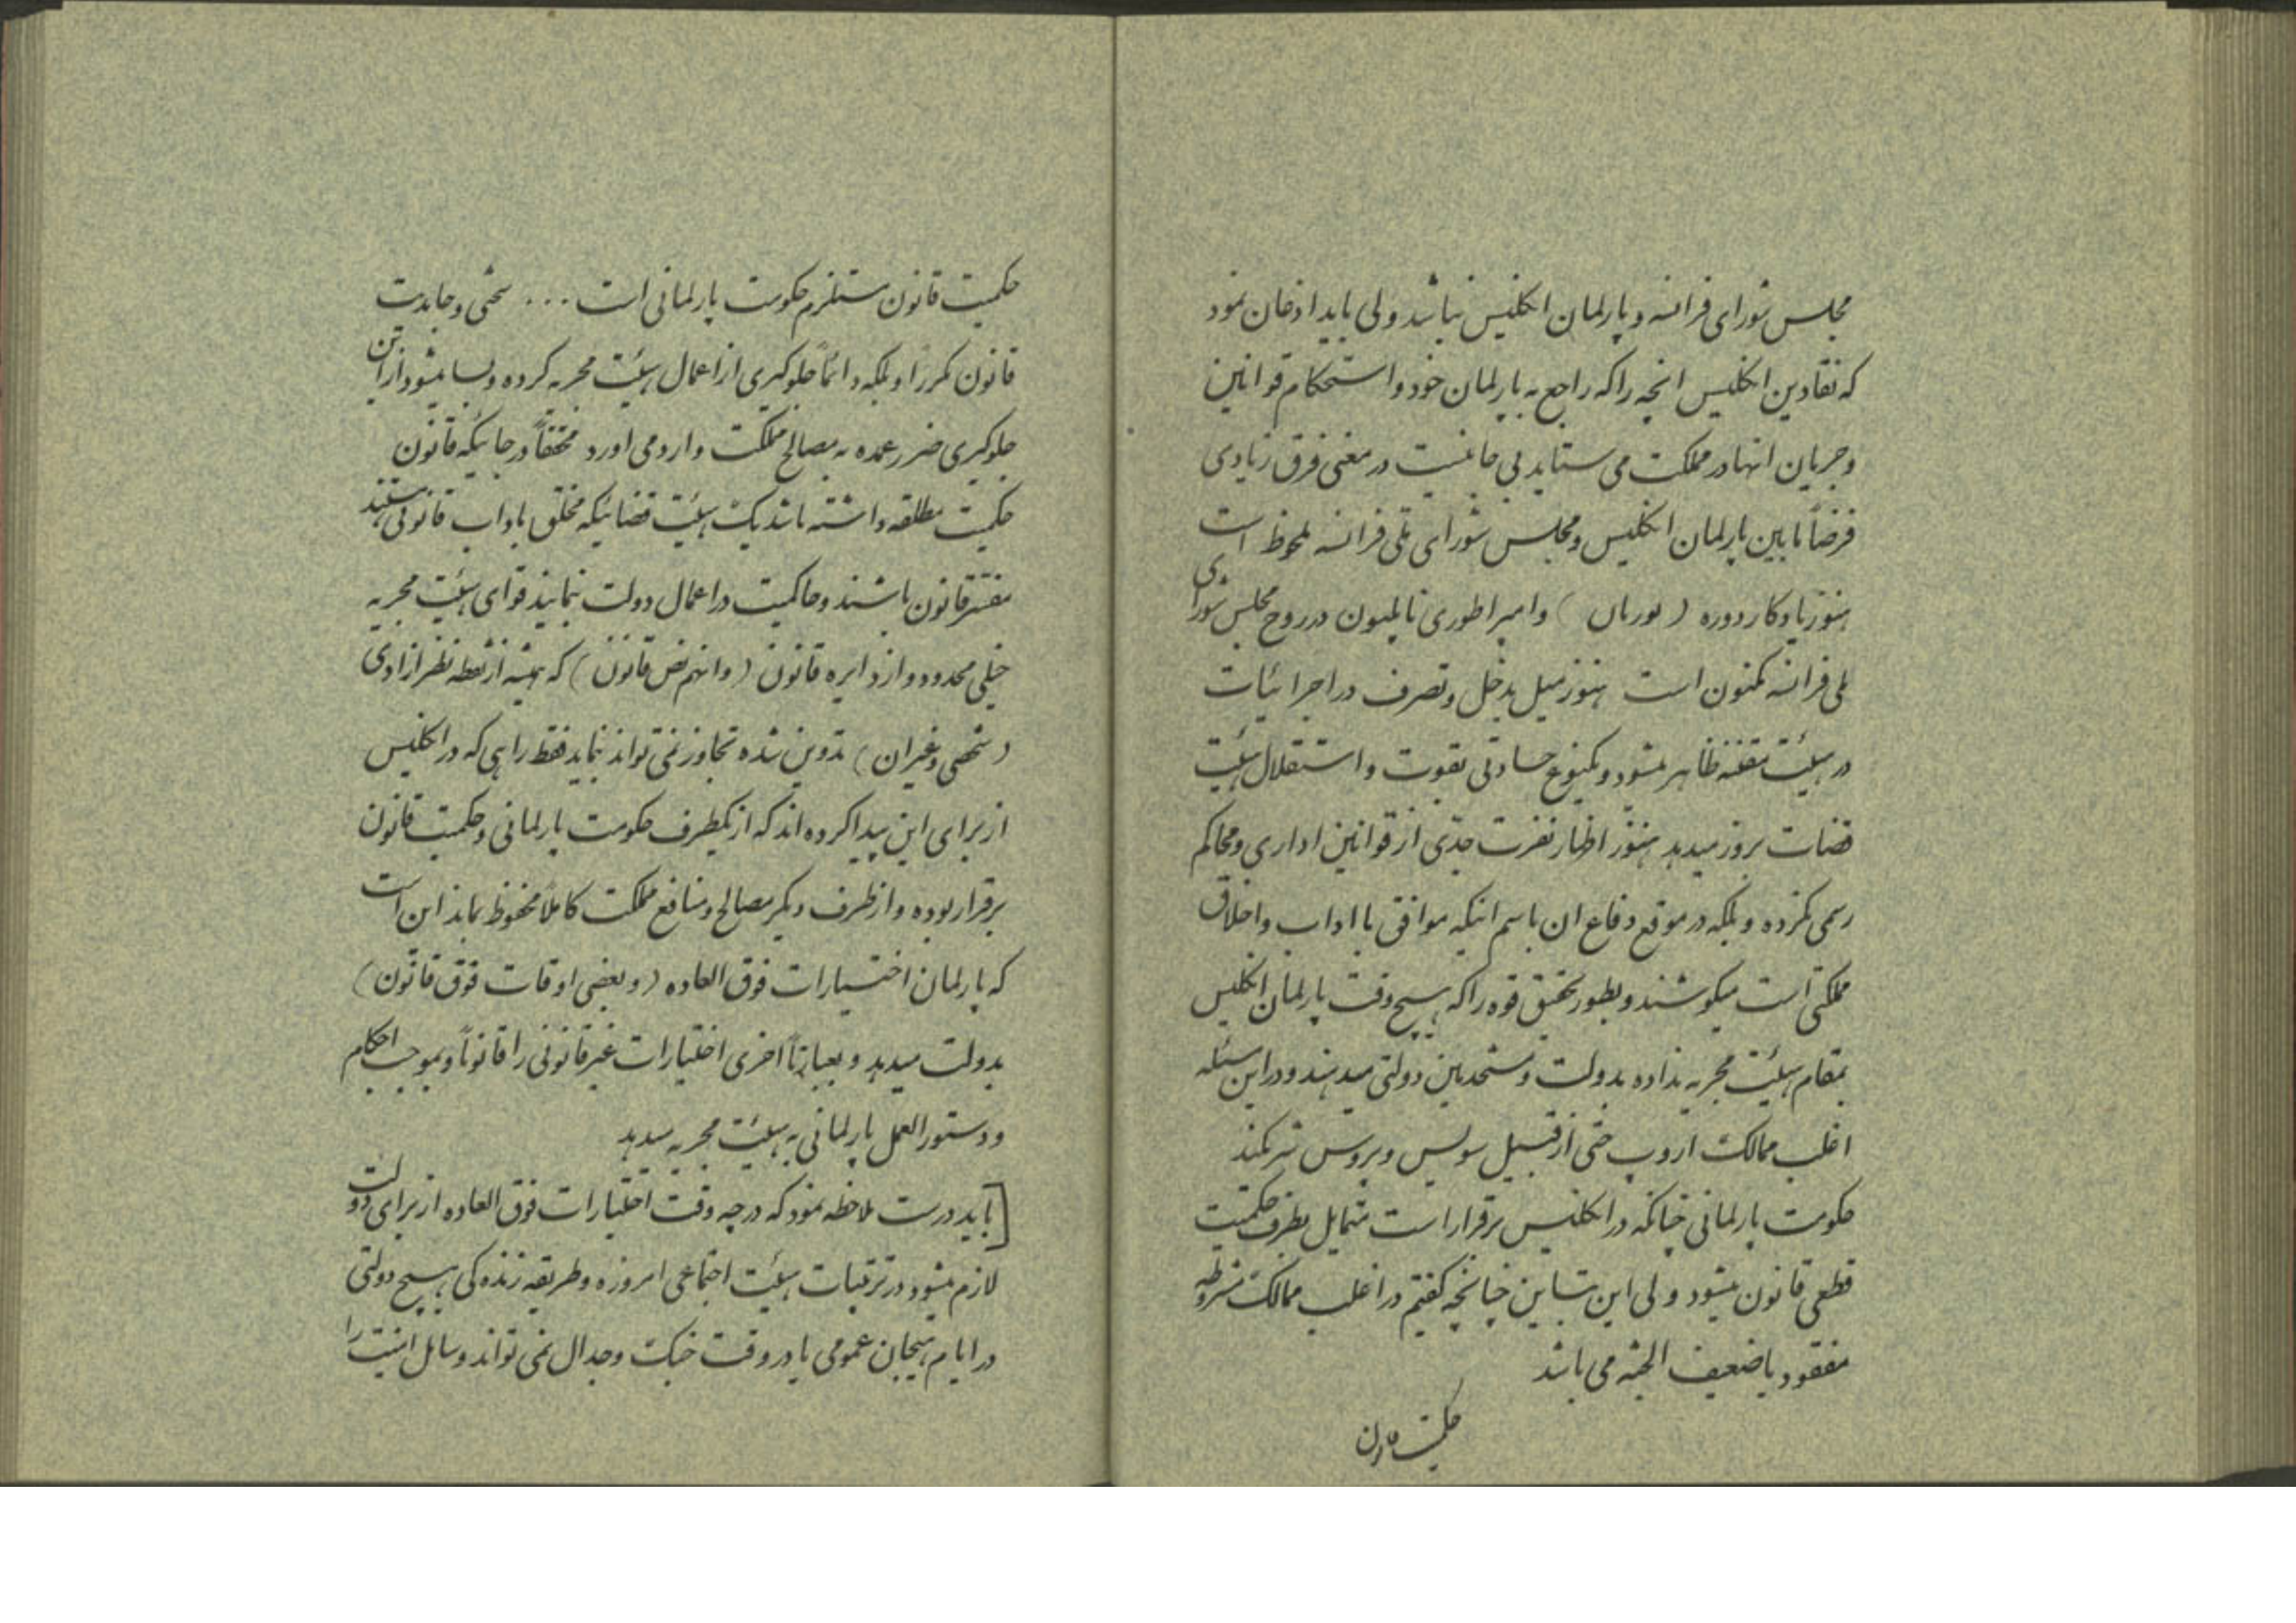 مجلس شورای فرانسه و پارلمان انکلیس نباشد ولی باید اذعان نمود
که نقادین انکلیس انچه را که راجع به پارلمان خود و استحکام قوانین
و جریان انها در مملکت می ستاید بی جا نیست در معنی فرق زیادی
فرضاً مابین پارلمان انکلیس و مجلس شورای ملی فرانسه ملحوظ است
هنوز یادکار دوره ( بوربان ) و امپراطوری ناپلیون در روح مجلس شورای
ملی فرانسه مکنون است هنوز میل بدخل و تصرف در اجرائیات
در هیئت مقننه ظاهر میشود و یکنوع حسادتی بقوت و استقلال هیئت
قضات بروز میدهد هنوز اظهار نفرت جدی از قوانین اداری و محاکم
رسمی نکرده و بلکه در موقع دفاع ان باسم اینکه موافق با اداب و اخلاق
مملکتی است میکوشند و بطور تحقیق قوه را که هیچ وقت پارلمان انکلیس
بمقام هیئت مجریه نداده بدولت و مستخدمین دولتی میدهند و در این مسئله
اغلب ممالک اروپ حتی از قبیل سویس و پروس شریکند
حکومت پارلمانی چنانکه در انکلیس برقرار است متمایل بطرف حکمیت
قطعی قانون میشود ولی این تباین چنانچه کفتیم در اغلب ممالک مشروطه
مفقود یا ضعیف الجثه می باشد
حکمیت قانون
حکمیت قانون مستلزم حکومت پارلمانی است ... سختی و جابدت
قانون مکرراً و بلکه دائماً جلوکیری از اعمال هیئت مجریه کرده و بسا میشود از این
جلوکیری ضرر عمده به مصالح مملکت وارد می اورد محققاً در جائیکه قانون
حکمیت مطلقه داشته باشد یک هیئت قضائیکه مخلق باداب قانونی هستند
مفسر قانون باشند و حاکمیت در اعمال دولت نمایند قوای هیئت مجریه
خیلی محدود و از دایره قانون ( و انهم نص قانون ) که همیشه از نقطه نظر ازادی
( شخصی و غیران ) تدوین شده تجاوز نمی تواند بنماید فقط راهی که در انکلیس
از برای این پیدا کرده اند که از یکطرف حکومت پارلمانی و حکمیت قانون
برقرار بوده و از طرف دیکر مصالح و منافع مملکت کاملاً محفوظ بماند این است
که پارلمان اختیارات فوق العاده ( و بعضی اوقات فوق قانون )
بدولت میدهد و بعبارتاً اخری اختیارات غیر قانونی را قانوناً و بموجب احکام
و دستورالعمل پارلمانی به هیئت مجریه میدهد
[ باید درست ملاحظه نمود که در چه وقت اختیارات فوق العاده از برای دولت
لازم میشود در ترتیبات هیئت اجتماعی امروزه و طریقه زنده کی هیچ دولتی
در ایام هیجان عمومی یا در وقت جنک و جدال نمی تواند وسائل امنیت را